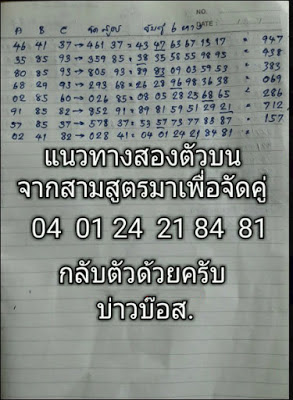 NO.
DATE
A B C
46 41 37 → 461 37 = 43 47 63 67 13 17 = 947
35 85 93 → 359 85 = 38 35 58 55 98 95 = 438
80 85 93 → 805 93 = 89 83 09 03 59 53 = 383
68 29 93 → 293 68 = 26 28 96 98 36 38 = 069
02 85 60 → 026 85 = 08 05 28 25 68 65 = 286
91 85 82 → 852 91 = 89 81 59 51 29 21 = 712
37 85 37 → 578 37 = 53 57 73 77 83 87 = 157
02 41 82 → 028 41 = 04 01 24 21 84 81 =
แนวทางสองตัวบน
จากสามสูตรมาเพื่อจัดคู่
04 01 24 21 84 81
กลับตัวด้วยครับ
บ่าวบ๊อส.